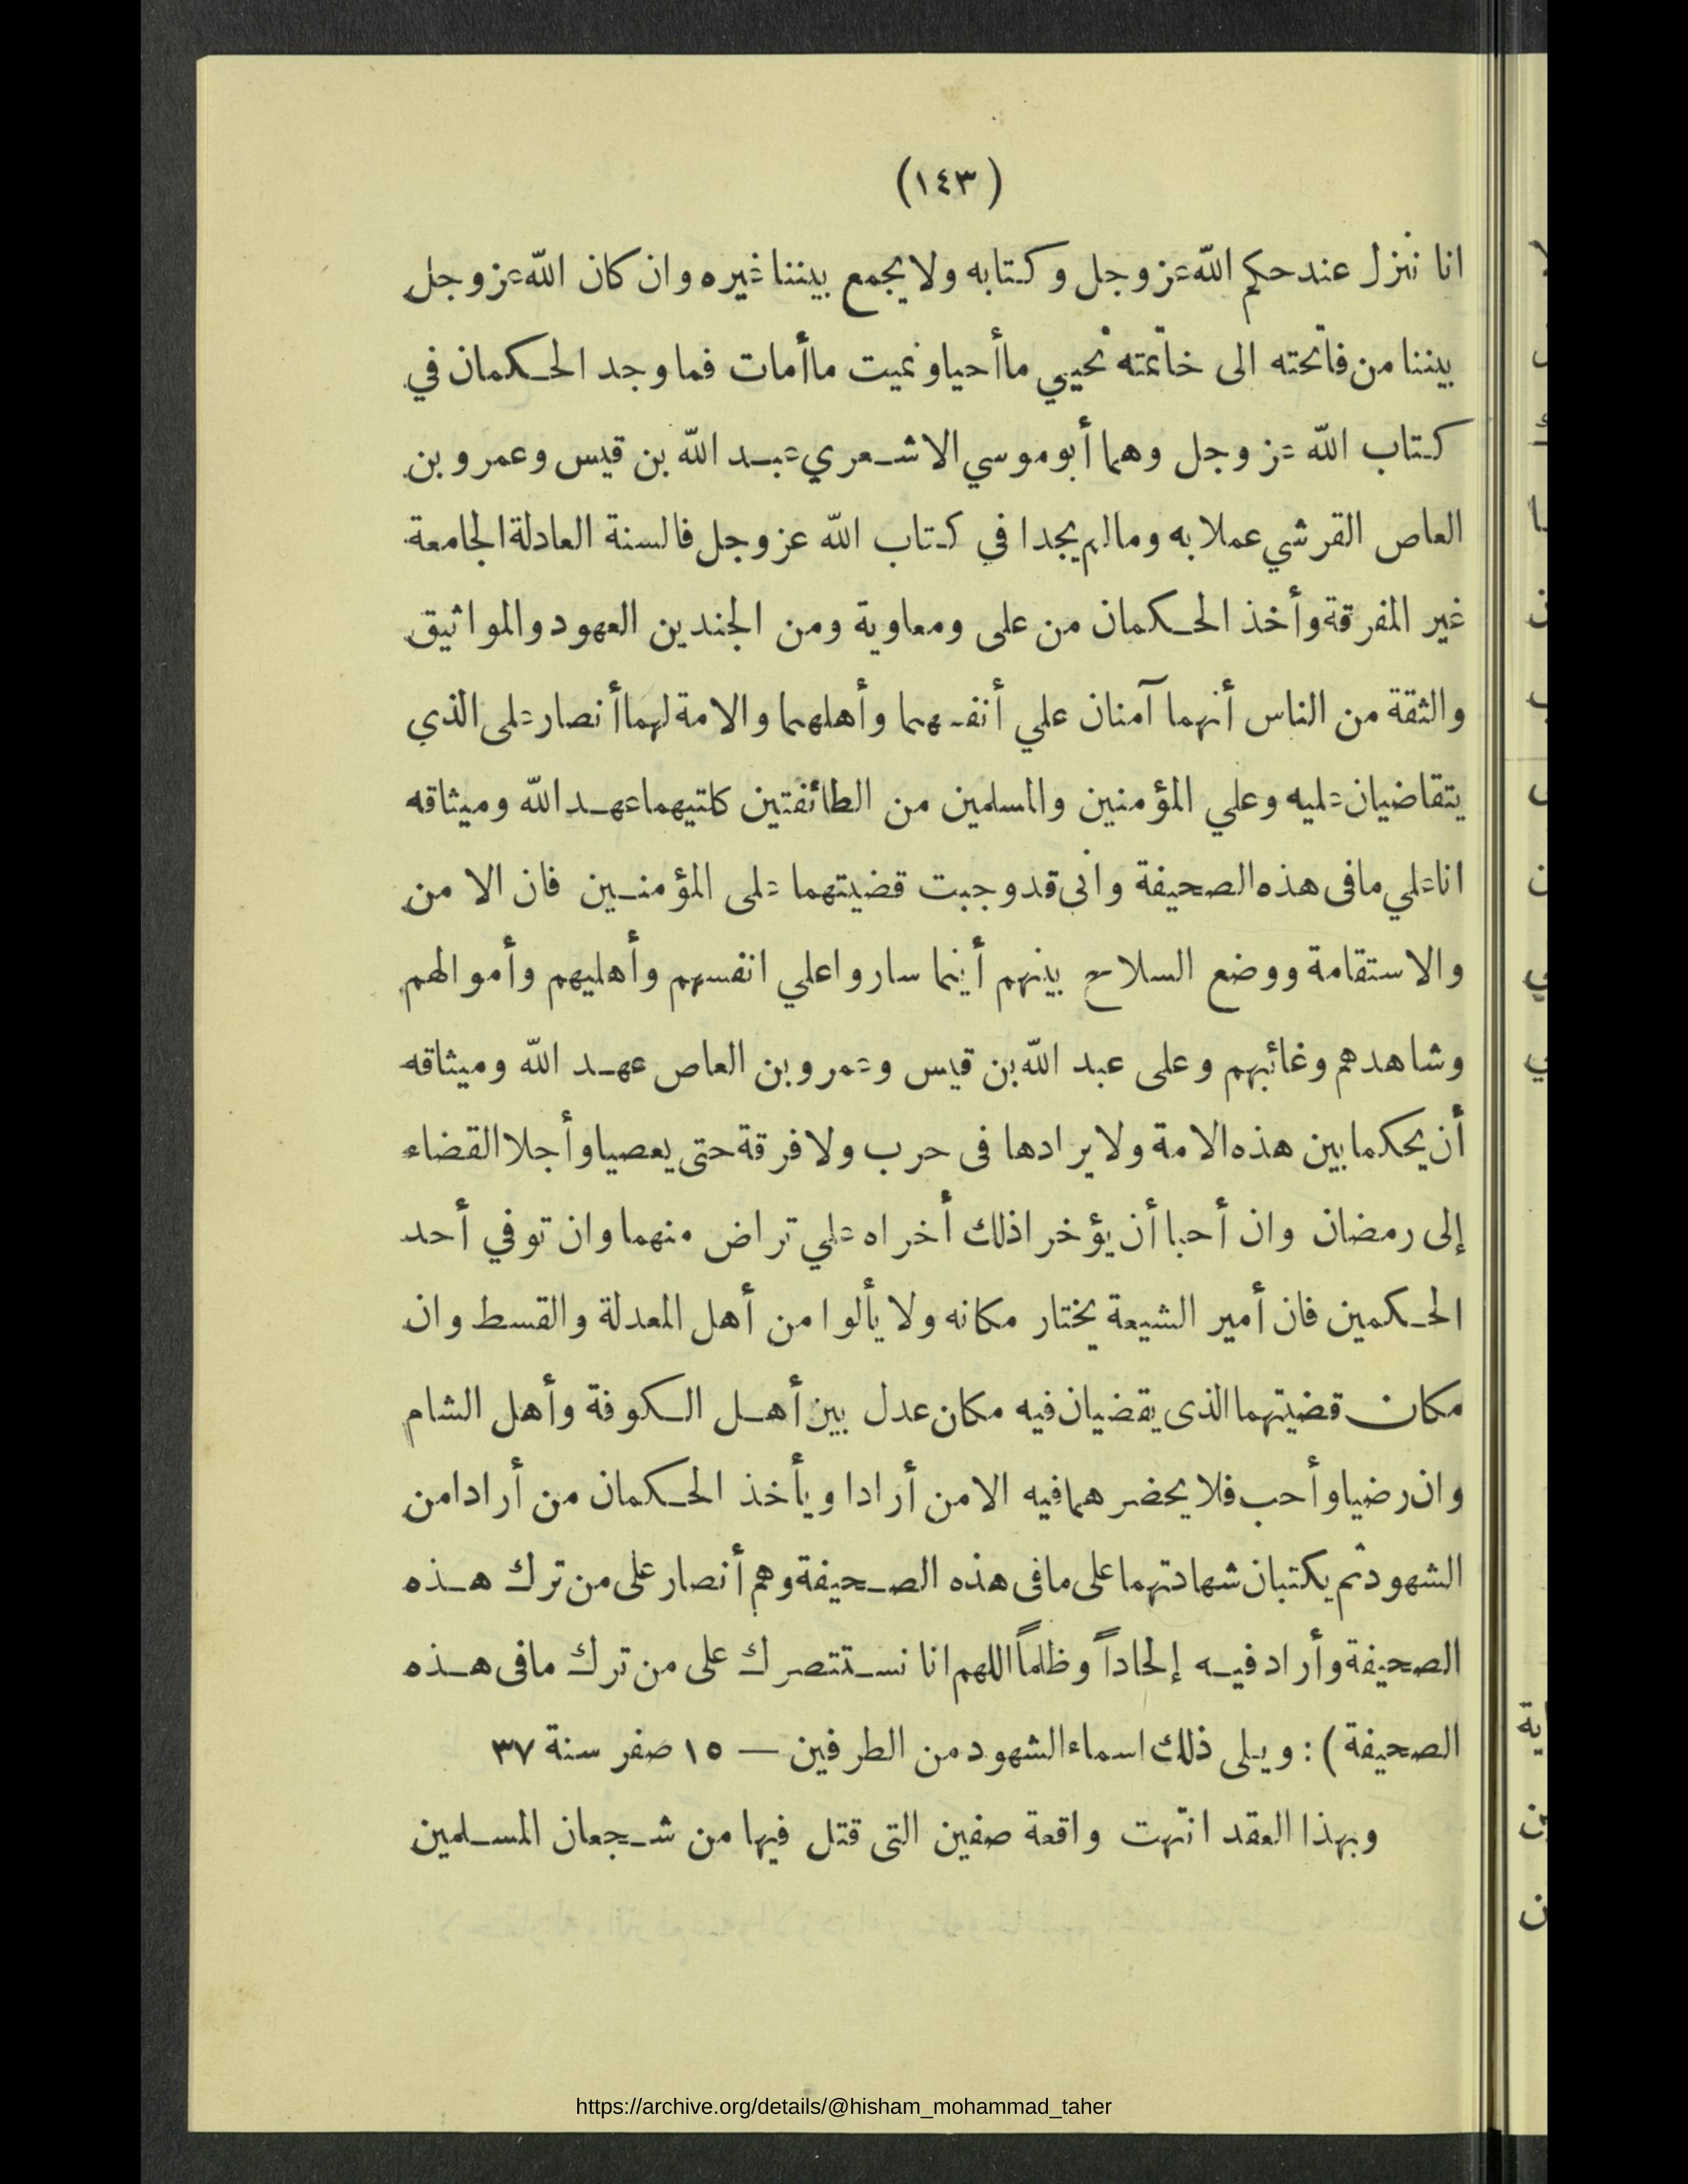 (١٤٣)
انا ننزل عند حكم الله عز وجل وكتابه ولا يجمع بيننا غيره وان كان الله عز وجل
بيننا من فاتحته الى خاتمته نحيي ما أحيا ونميت ما أمات فما وجد الحكمان في
كتاب الله عز وجل وهما أبو موسي الاشعري عبد الله بن قيس وعمرو بن
العاص القرشي عملا به وما لم يجدا في كتاب الله عز وجل فالسنة العادلة الجامعة
غير المفرقة وأخذ الحكمان من على ومعاوية ومن الجندين العهود والمواثيق
والثقة من الناس أنهما آمنان علي أنفسهما وأهلهما والامة لهما أنصار على الذي
يتقاضيان عليه وعلي المؤمنين والمسلمين من الطائفتين كلتيهما عهد الله وميثاقه
انا علي مافى هذه الصحيفة وانى قد وجبت قضيتهما على المؤمنين فان الا من
والاستقامة ووضع السلاح بينهم أينما ساروا علي انفسهم وأهليهم وأموالهم
وشاهدهم وغائبهم وعلى عبد الله بن قيس وعمرو بن العاص عهد الله وميثاقه
أن يحكما بين هذه الامة ولا يرادها فى حرب ولا فرقة حتى يعصيا وأجلا القضاء
إلى رمضان وان أحبا أن يؤخرا ذلك أخراه علي تراض منهما وان توفي أحد
الحكمين فان أمير الشيعة يختار مكانه ولا يألوا من أهل المعدلة والقسط وان
مكان قضيتهما الذى يقضيان فيه مكان عدل بين أهل الكوفة وأهل الشام
وان رضيا وأحب فلا يحضرهما فيه الا من أرادا ويأخذ الحكمان من أرادا من
الشهود ثم يكتبان شهادتهما على مافى هذه الصحيفة وهم أنصار على من ترك هذه
الصحيفة وأراد فيه إلحاداً وظلماً اللهم انا نستنصرك على من ترك مافى هذه
الصحيفة) : ويلى ذلك اسماء الشهود من الطرفين — ١٥ صفر سنة ٣٧
وبهذا العقد انتهت واقعة صفين التى قتل فيها من شجعان المسلمين
https://archive.org/details/@hisham_mohammad_taher